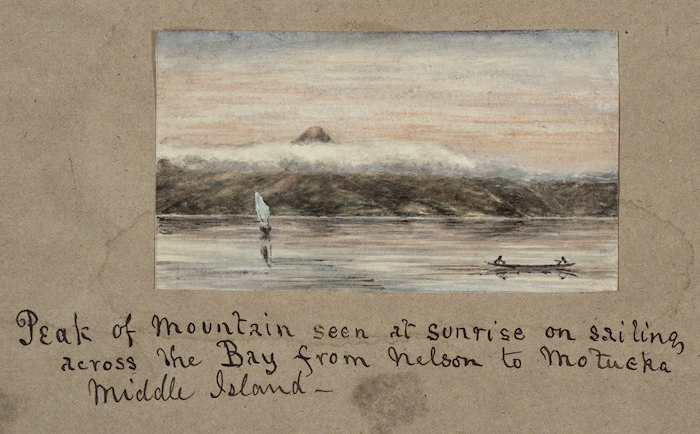 Peak of Mountain seen at sunrise on sailing,
across the Bay from Nelson to Motueka
Middle Island –